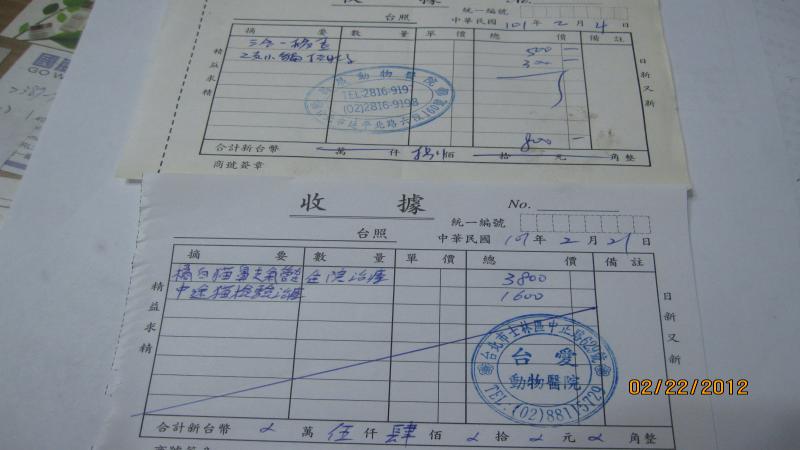 收據
統一編號
台照 中華民國 101年 2月 4日
摘要 數量 單價 總價 備註
三合一檢查 500
300
動物醫院
TEL:2816-9197
(02)2816-9198
800
合計新台幣 萬 仟 捌佰 拾 元 角整
商號簽章
精益求精
日新又新
GO W
收據 No.
統一編號
台照 中華民國 101年 2月 21日
摘要 數量 單價 總價 備註
橘白貓 住院治療 3800
中途貓檢驗治療 1600
精益求精
日新又新
台北市士林區中正路629號
台愛
動物醫院
TEL:(02)88115729
02/22/2012
合計新台幣 萬 伍仟 肆佰 拾 元 角整